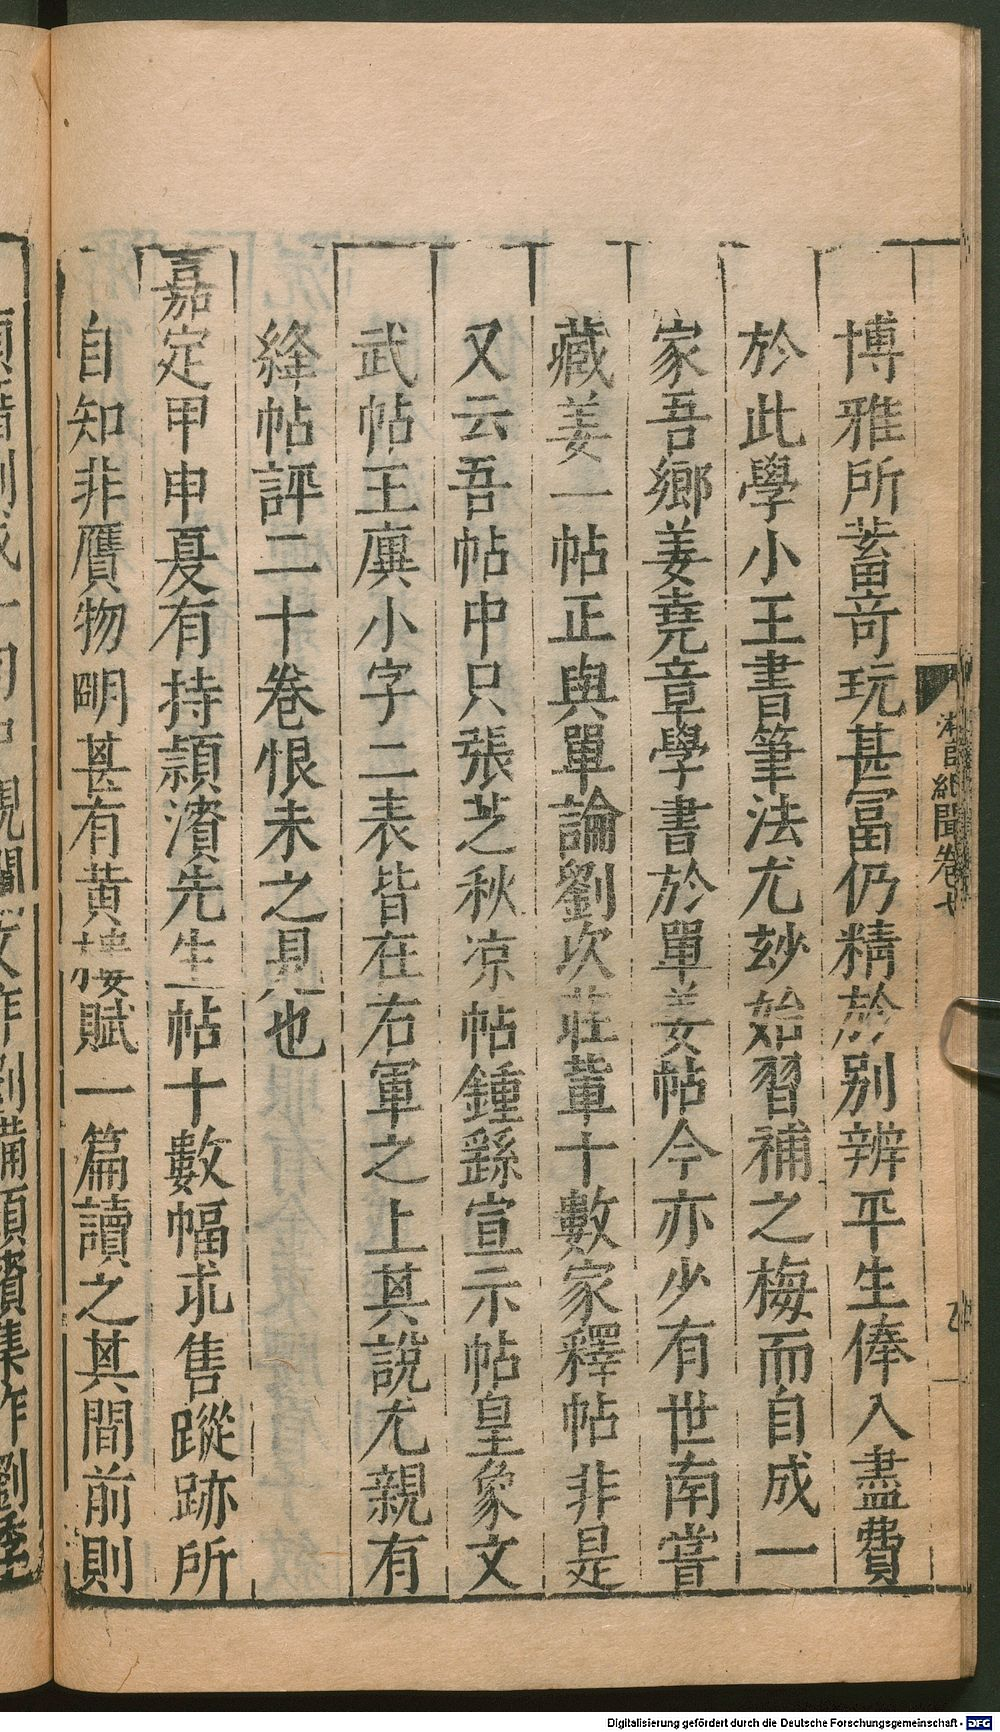 博雅所蓄竒玩甚冨仍精於别辨平生俸入盡費
於此學小王書筆法尤玅始習補之梅而自成一
家吾郷姜堯章學書於單姜帖今亦少有世南嘗
藏姜一帖正與單論劉次莊軰十數家釋帖非是
又云吾帖中只張芝秋凉帖鍾繇宣示帖皇象文
武帖王廙小字二表皆在右軍之上其說尤親有
絳帖評二十卷恨未之見也
嘉定甲申夏有持頴濱先生帖十數幅求售蹤跡所
自知非贋物明甚有黄樓賦一篇讀之其間前則
紙聞卷七
Digitalisierung gefördert durch die Deutsche Forschungsgemeinschaft - DFG